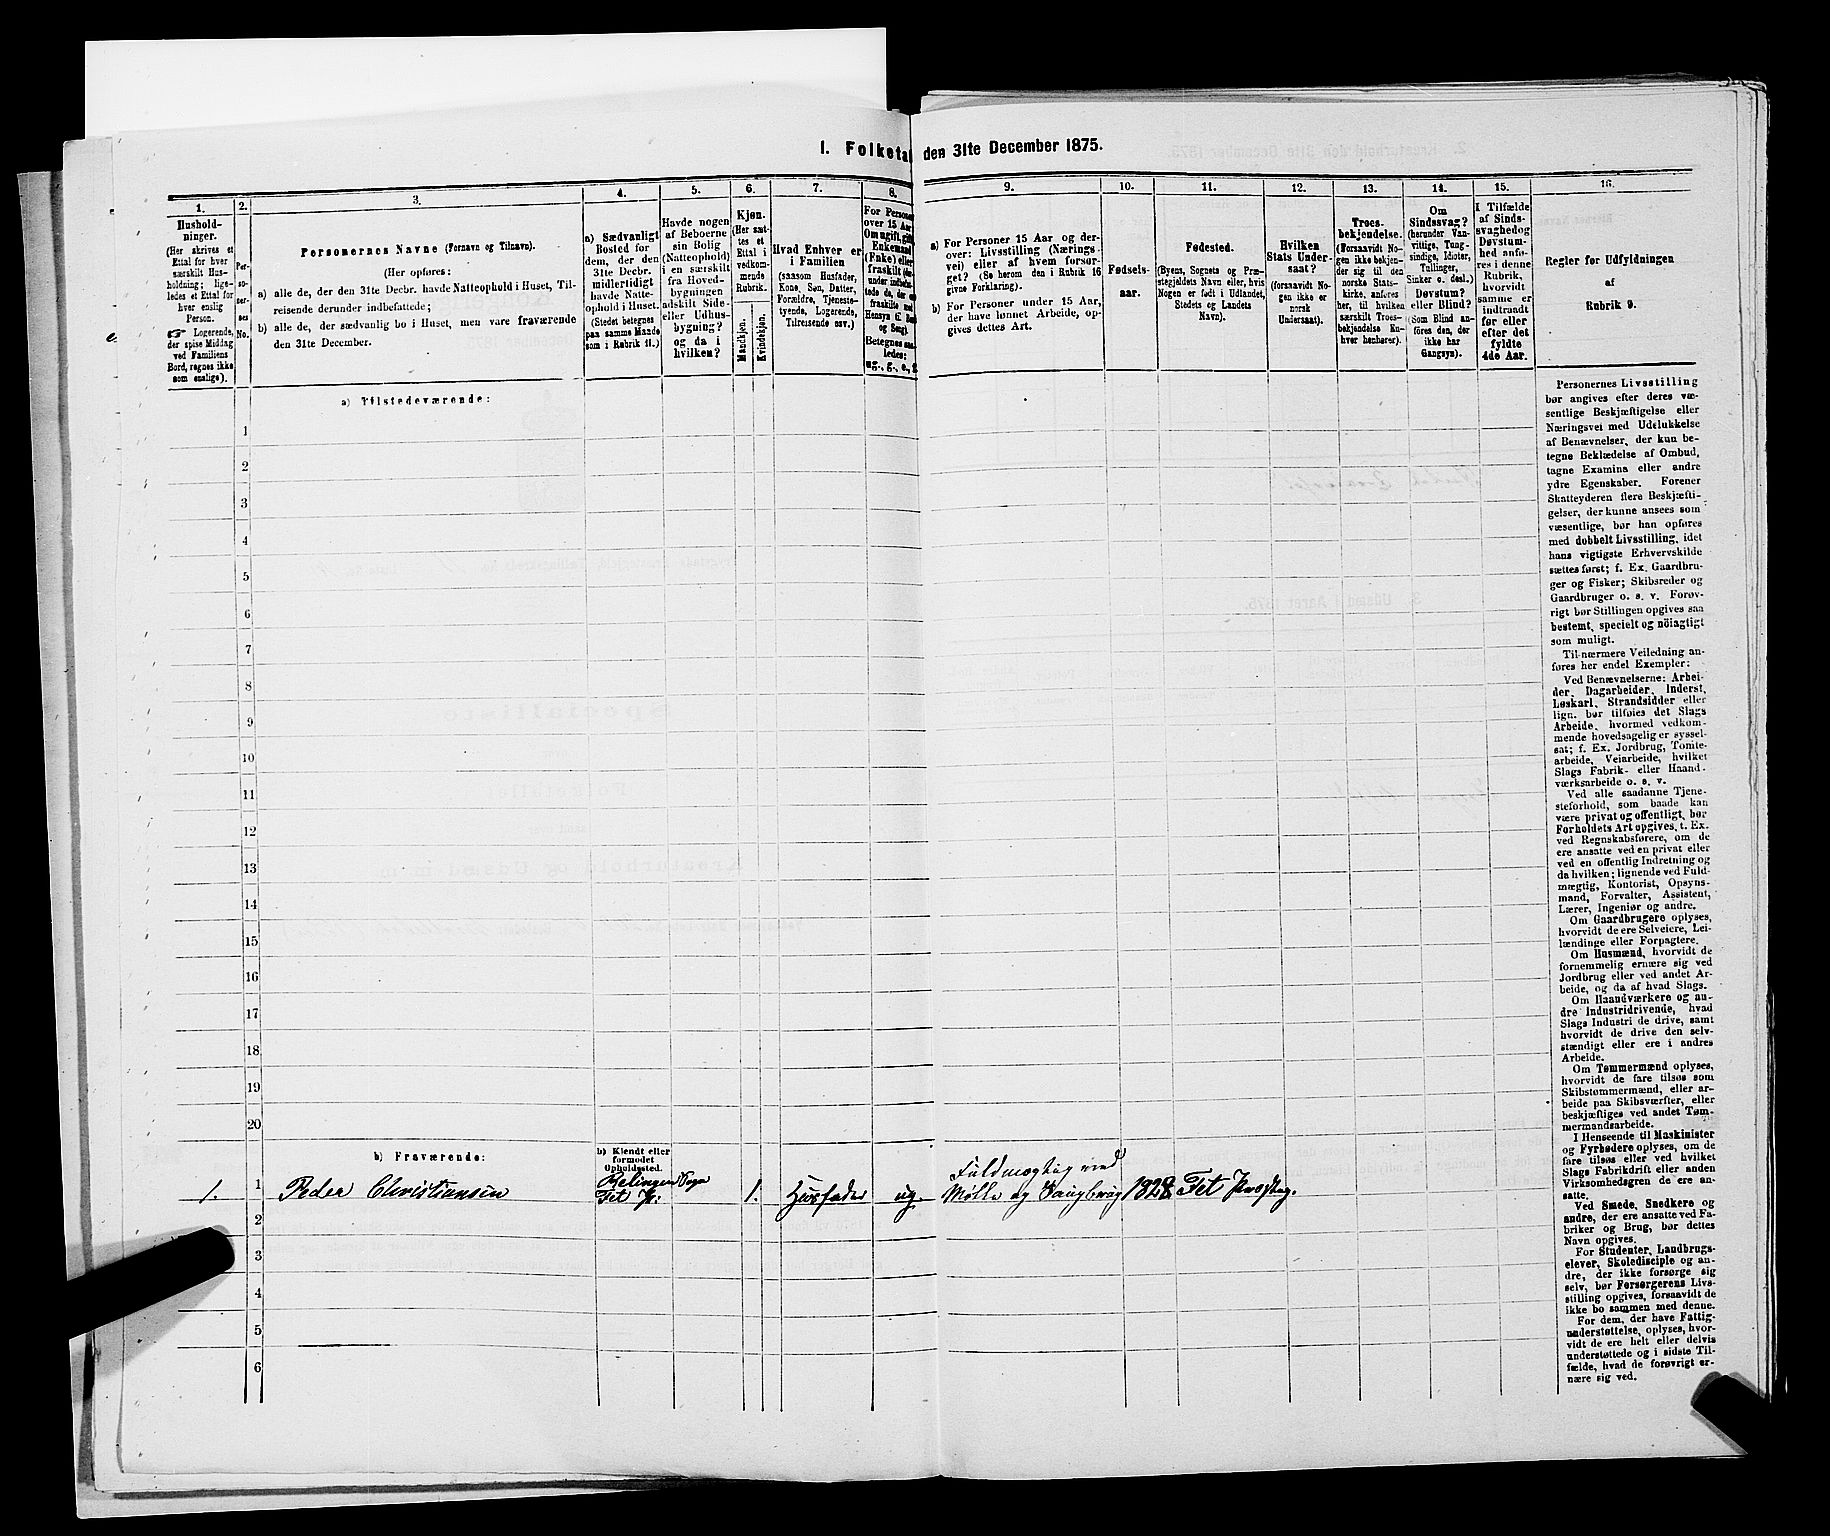 I. Folketal den 31te December 1875.
1.
Hushold-
ninger.
(Her skrives et
Ettal for hver
særskilt Hus-
holdning; lige-
ledes et Ettal for
hver enslig
Person.
☞ Logerende,
der spise Middag
ved Familiens
Bord, regnes ikke
som enslige).
2.
Per-
so-
ner-
nes
No.
3.
Personernes Navne (Fornavn og Tilnavn).
(Her opføres:
a) alle de, der den 31te Decbr. havde Natteophold i Huset, Til-
reisende derunder indbefattede;
b) alle de, der sædvanlig bo i Huset, men vare fraværende
den 31te December.
4.
a) Sædvanligt
Bosted for
dem, der den
31te Decbr.
midlertidigt
havde Natte-
ophold i Huset.
(Stedet betegnes
paa samme Maade
som i Rubrik 11.)
5.
Havde nogen
af Beboerne
sin Bolig
(Natteophold)
i en særskilt
fra Hoved-
bygningen
adskilt Side-
eller Udhus-
bygning?
og da i
hvilken?
6.
Kjøn.
(Her sæt-
tes et
Ettal i
vedkom-
mende
Rubrik.
Mandkjøn.
Kvindekjøn.
7.
Hvad Enhver er
i Familien
(saasom Husfader,
Kone, Søn, Datter,
Forældre, Tjeneste-
tyende, Logerende,
Tilreisende osv.)
8.
For Personer
over 15 Aar:
Om ugift, gift,
Enkemand
(Enke) eller
fraskilt
Betegnes saa-
ledes:
ug., g., e., f.
9.
a) For Personer 15 Aar og der-
over: Livsstilling (Nærings-
vei) eller af hvem forsør-
get? (Se herom den i Rubrik 16
givne Forklaring).
b) For Personer under 15 Aar,
der have lønnet Arbeide, op-
gives dettes Art.
10.
Fødsels-
aar.
11.
Fødested.
(Byens, Sognets og Præ-
stegjeldets Navn eller, hvis
Nogen er født i Udlandet,
Stedets og Landets
Navn).
12.
Hvilken
Stats Under-
saat?
(forsaavidt No-
gen ikke er
norsk
Undersaat).
13.
Troes-
bekjendelse.
(Forsaavidt No-
gen ikke bekjen-
der sig til den
norske Stats-
kirke, anføres
her, til hvilket
særskilt Troes-
bekjendelse En-
hver henhører).
14.
Om
Sindssvag?
(herunder Van-
vittige, Tung-
sindige, Idioter,
Tullinger,
Sinker o. desl.)
Døvstum?
eller Blind?
(Som Blind an-
føres den, der
ikke har
Gangsyn).
15.
I Tilfælde
af Sinds-
svaghed og
Døvstum-
hed anfø-
res i denne
Rubrik,
hvorvidt
samme er
indtraadt
før eller
efter det
fyldte
4de Aar.
16.
Regler for Udfyldningen
af
Rubrik 9.
a) Tilstedeværende:
1
2
3
4
5
6
7
8
9
10
11
12
13
14
15
16
17
18
19
20
b) Fraværende:
b) Kjendt eller
formodet
Opholdssted.
1. 1 Peder Christiansen Relingen Sogn
Fet P. 1. Husfader ug. Fuldmægtig ved
Mølle og Saugbrug 1828 Fet Præsteg.
2
3
4
5
6
Personernes Livsstilling
bør angives efter deres væ-
sentlige Beskjæftigelse eller
Næringsvei med Udelukkelse
af Benævnelser, der kun be-
tegne Beklædelse af Ombud,
tagne Examina eller andre
ydre Egenskaber. Forener
Skatteyderen flere Beskjæfti-
gelser, der kunne ansees som
væsentlige, bør han opføres
med dobbelt Livsstilling, idet
hans vigtigste Erhvervskilde
sættes først; f. Ex. Gaardbru-
ger og Fisker; Skibsreder og
Gaardbruger o. s. v. Forøv-
rigt bør Stillingen opgives saa
bestemt, specielt og nöiagtigt
som muligt.
Til nærmere Veiledning an-
føres her endel Exempler:
Ved Benævnelserne: Arbei-
der, Dagarbeider, Inderst,
Løskarl, Strandsidder eller
lign. bør tilføies det Slags
Arbeide, hvormed vedkom-
mende hovedsagelig er syssel-
sat; f. Ex. Jordbrug, Tomte-
arbeide, Veiarbeide, hvilket
Slags Fabrik- eller Haand-
værksarbeide o. s. v.
Ved alle saadanne Tjene-
steforhold, som baade kan
være privat og offentligt, bør
Forholdets Art opgives, t. Ex.
ved Regnskabsførere, om de
ere ansatte ved en privat eller
ved en offentlig Indretning og
da hvilken; lignende ved Fuld-
mægtig, Kontorist, Opsyns-
mand, Forvalter, Assistent,
Lærer, Ingeniør og andre.
Om Gaardbrugere oplyses,
hvorvidt de ere Selveiere, Lei-
lændinge eller Forpagtere.
Om Husmænd, hvorvidt de
fornemmelig ernære sig ved
Jordbrug eller ved andet Ar-
beide, og da af hvad Slags.
Om Haandværkere og an-
dre Industridrivende, hvad
Slags Industri de drive, samt
hvorvidt de drive den selv-
stændigt eller ere i andres
Arbeide.
Om Tømmermænd oplyses,
hvorvidt de fare tilsøs som
Skibstømmermænd, eller ar-
beide paa Skibsværfter, eller
beskjæftiges ved andet Tøm-
mermandsarbeide.
I Henseende til Maskinister
og Fyrbødere oplyses, om de
fare tilsøs eller ved hvilket
Slags Fabrikdrift eller anden
Virksomhedsgren de ere an-
satte.
Ved Smede, Snedkere og
andre, der ere ansatte ved Fa-
briker og Brug, bør dettes
Navn opgives.
For Studenter, Landbrugs-
elever, Skoledisciple og an-
dre, der ikke forsørge sig
selv, bør Forsørgerens Livs-
stilling opgives, forsaavidt de
ikke bo sammen med denne.
For dem, der have Fattig-
understøttelse, oplyses, hvor-
vidt de ere helt eller delvis
understøttede og i sidste Til-
fælde, hvad de forøvrigt er-
nære sig ved.